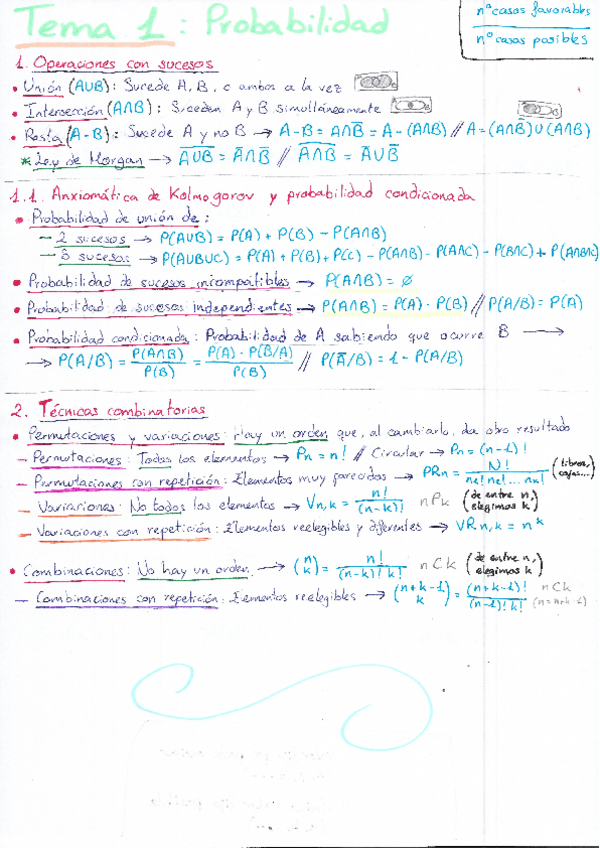 Tema 1: Probabilidad
nº casos favorables
nº casos posibles
1. Operaciones con sucesos
• Unión (A∪B): Sucede A, B, o ambos a la vez
• Intersección (A∩B): Suceden A y B simultáneamente
• Resta (A-B): Sucede A y no B → A-B = A∩B̅ = A-(A∩B) // A=(A∩B̅)∪(A∩B)
* Ley de Morgan → A̅∪̅B̅ = A̅∩B̅ // A̅∩̅B̅ = A̅∪B̅
1.1. Anxiomática de Kolmogorov y probabilidad condicionada
• Probabilidad de unión de:
– 2 sucesos → P(A∪B) = P(A) + P(B) - P(A∩B)
– 3 sucesos → P(A∪B∪C) = P(A) + P(B) + P(C) - P(A∩B) - P(A∩C) - P(B∩C) + P(A∩B∩C)
• Probabilidad de sucesos incompatibles → P(A∩B) = ∅
• Probabilidad de sucesos independientes → P(A∩B) = P(A) · P(B) // P(A/B) = P(A)
• Probabilidad condicionada: Probabilidad de A sabiendo que ocurre B →
→ P(A/B) = P(A∩B)/P(B) = P(A) · P(B/A)/P(B) // P(A̅/B) = 1 - P(A/B)
2. Técnicas combinatorias
• Permutaciones y variaciones: Hay un orden que, al cambiarlo, da otro resultado
– Permutaciones: Todos los elementos → Pn = n! // Circular → Pn = (n-1)!
– Permutaciones con repetición: Elementos muy parecidos → PRn = N!/n1! n2!... nn! (libros, cajas...)
– Variaciones: No todos los elementos → Vn,k = n!/(n-k)! nPk (de entre n, elegimos k)
– Variaciones con repetición: Elementos reelegibles y diferentes → VRn,k = n^k
• Combinaciones: No hay un orden → (n k) = n!/(n-k)! k! nCk (de entre n, elegimos k)
– Combinaciones con repetición: Elementos reelegibles → (n+k-1 k) = (n+k-1)!/(n-1)! k! nCk (n=n+k-1)